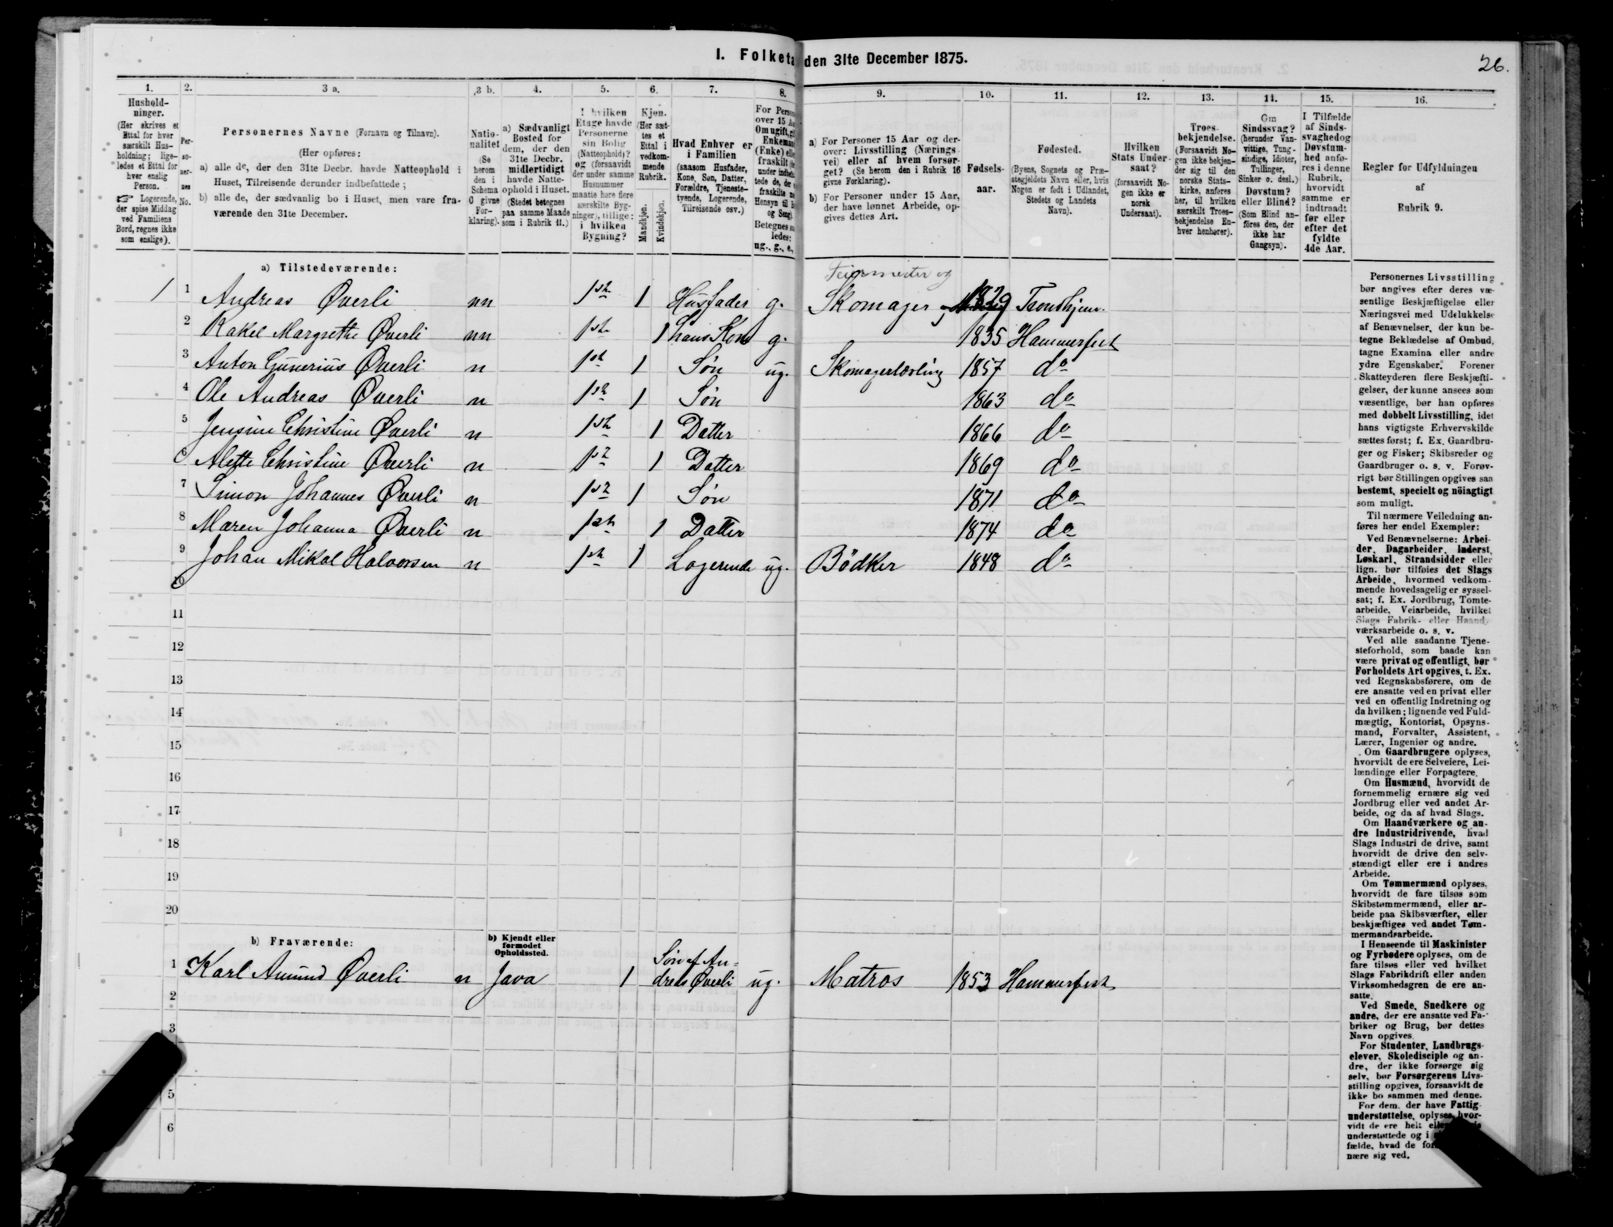 I. Folketa den 31te December 1875.
26.
1. 2. 3 a. 3 b. 4. 5. 6. 7. 8. 9. 10. 11. 12. 13. 14. 15. 16.
Hushold-
ninger.
(Her skrives et
Ettal for hver
særskilt Hus-
holdning; lige-
ledes et Ettal for
hver enslig
Person.
Logerende,
der spise Middag
ved Familiens
Bord, regnes ikke
som enslige).
Per-
so-
ner-
nes
No.
Personernes Navne (Fornavn og Tilnavn).
(Her opføres:
a) alle de, der den 31te Decbr. havde Natteophold i
Huset, Tilreisende derunder indbefattede;
b) alle de, der sædvanlig bo i Huset, men vare fra-
værende den 31te December.
Natio-
nalitet
(Se
herom
den i
Schema
O givne
For-
klaring).
a) Sædvanligt
Bosted for
dem, der den
31te Decbr.
midlertidigt
havde Natte-
ophold i Huset.
(Stedet betegnes
paa samme Maade
som i Rubrik 11.)
I hvilken
Etage havde
Personerne
sin Bolig
(Natteophold)?
og (forsaavidt
der under samme
Husnummer
maatte høre flere
særskilte Byg-
ninger), tillige:
i hvilken
Bygning?
Kjøn.
(Her sæt-
tes et
Ettal i
vedkom-
mende
Rubrik.
Mandkjøn.
Kvindekjøn.
Hvad Enhver er
i Familien
(saasom Husfader,
Kone, Søn, Datter,
Forældre, Tjeneste-
tyende, Logerende,
Tilreisende osv.)
For Person
over 15 Aa
Om ugift, gi
Enkemand
(Enke) elle
fraskilt
ug., g., e.,
a) For Personer 15 Aar og der-
over: Livsstilling (Nærings-
vei) eller af hvem forsør-
get? (Se herom den i Rubrik 16
givne Forklaring).
b) For Personer under 15 Aar,
der have lønnet Arbeide, op-
gives dettes Art.
Fødsels-
aar.
Fødested.
(Byens, Sognets og Præ-
stegjeldets Navn eller, hvis
Nogen er født i Udlandet,
Stedets og Landets
Navn).
Hvilken
Stats Under-
saat?
(forsaavidt No-
gen ikke er
norsk
Undersaat).
Troes-
bekjendelse.
(Forsaavidt No-
gen ikke bekjen-
der sig til den
norske Stats-
kirke, anføres
her, til hvilken
særskilt Troes-
bekjendelse En-
hver henhører).
Om
Sindssvag?
(herunder Van-
vittige, Tung-
sindige, Idioter,
Tullinger,
Sinker o. desl.)
Døvstum?
eller Blind?
(Som Blind an-
føres den, der
ikke har
Gangsyn).
I Tilfælde
af Sinds-
svaghed og
Døvstum-
hed anfø-
res i denne
Rubrik,
hvorvidt
samme er
indtraadt
før eller
efter det
fyldte
4de Aar.
Regler for Udfyldningen
af
Rubrik 9.
a) Tilstedeværende:
Feiermester og
1 1 Andreas Øverli nn 1st 1 Husfader g. Skomager 1829 Tronhjem
2 Rakel Margrethe Øverli nn 1st 1 hans Kone g. 1835 Hammerfest
3 Anton Gunerius Øverli n 1st 1 Søn ug. Skomagerlærling 1857 do
4 Ole Andreas Øverli n 1st 1 Søn 1863 do
5 Jensine Christine Øverli n 1st 1 Datter 1866 do
6 Alette Christine Øverli n 1st 1 Datter 1869 do
7 Simon Johannes Øverli n 1st 1 Søn 1871 do
8 Maren Johanna Øverli n 1st 1 Datter 1874 do
9 Johan Mikal Halvorsen n 1st 1 Logerende ug. Bødker 1848 do
10
11
12
13
14
15
16
17
18
19
20
b) Fraværende:
b) Kjendt eller
formodet
Opholdssted.
Søn af An-
1 Karl Amund Øverli n Java 1 dreas Øverli ug. Matros 1853 Hammerfest
2
3
5
6
Personernes Livsstilling
bør angives efter deres væ-
sentlige Beskjæftigelse eller
Næringsvei med Udelukkelse
af Benævnelser, der kun be-
tegne Beklædelse af Ombud,
tagne Examina eller andre
ydre Egenskaber. Forener
Skatteyderen flere Beskjæfti-
gelser, der kunne ansees som
væsentlige, bør han opføres
med dobbelt Livsstilling, idet
hans vigtigste Erhvervskilde
sættes først; f. Ex. Gaardbru-
ger og Fisker; Skibsreder og
Gaardbruger o. s. v. Forøv-
rigt bør Stillingen opgives saa
bestemt, specielt og nöiagtigt
som muligt.
Til nærmere Veiledning an-
føres her endel Exempler:
Ved Benævnelserne: Arbei-
der, Dagarbeider, Inderst,
Løskarl, Strandsidder eller
lign. bør tilføies det Slags
Arbeide, hvormed vedkom-
mende hovedsagelig er syssel-
sat; f. Ex. Jordbrug, Tomte-
arbeide, Veiarbeide, hvilket
Slags Fabrik- eller Haand-
værksarbeide o. s. v.
Ved alle saadanne Tjene-
steforhold, som baade kan
være privat og offentligt, bør
Forholdets Art opgives, t. Ex.
ved Regnskabsførere, om de
ere ansatte ved en privat eller
ved en offentlig Indretning og
da hvilken; lignende ved Fuld-
mægtig, Kontorist, Opsyns-
mand, Forvalter, Assistent,
Lærer, Ingeniør og andre.
Om Gaardbrugere oplyses,
hvorvidt de ere Selveiere, Lei-
lændinge eller Forpagtere.
Om Husmænd, hvorvidt de
fornemmelig ernære sig ved
Jordbrug eller ved andet Ar-
beide, og da af hvad Slags.
Om Haandværkere og an-
dre Industridrivende, hvad
Slags Industri de drive, samt
hvorvidt de drive den selv-
stændigt eller ere i andres
Arbeide.
Om Tømmermænd oplyses,
hvorvidt de fare tilsøs som
Skibstømmermænd, eller ar-
beide paa Skibsværfter, eller
beskjæftiges ved andet Tøm-
mermandsarbeide.
I Henseende til Maskinister
og Fyrbødere oplyses, om de
fare tilsøs eller ved hvilket
Slags Fabrikdrift eller anden
Virksomhedsgren de ere an-
satte.
Ved Smede, Snedkere og
andre, der ere ansatte ved Fa-
briker og Brug, bør dettes
Navn opgives.
For Studenter, Landbrugs-
elever, Skoledisciple og an-
dre, der ikke forsørge sig
selv, bør Forsørgerens Livs-
stilling opgives, forsaavidt de
ikke bo sammen med denne.
For dem, der have Fattig-
understøttelse, oplyses, hvor-
vidt de ere helt
understøttede og i
fælde, hvad de
nære sig ved.